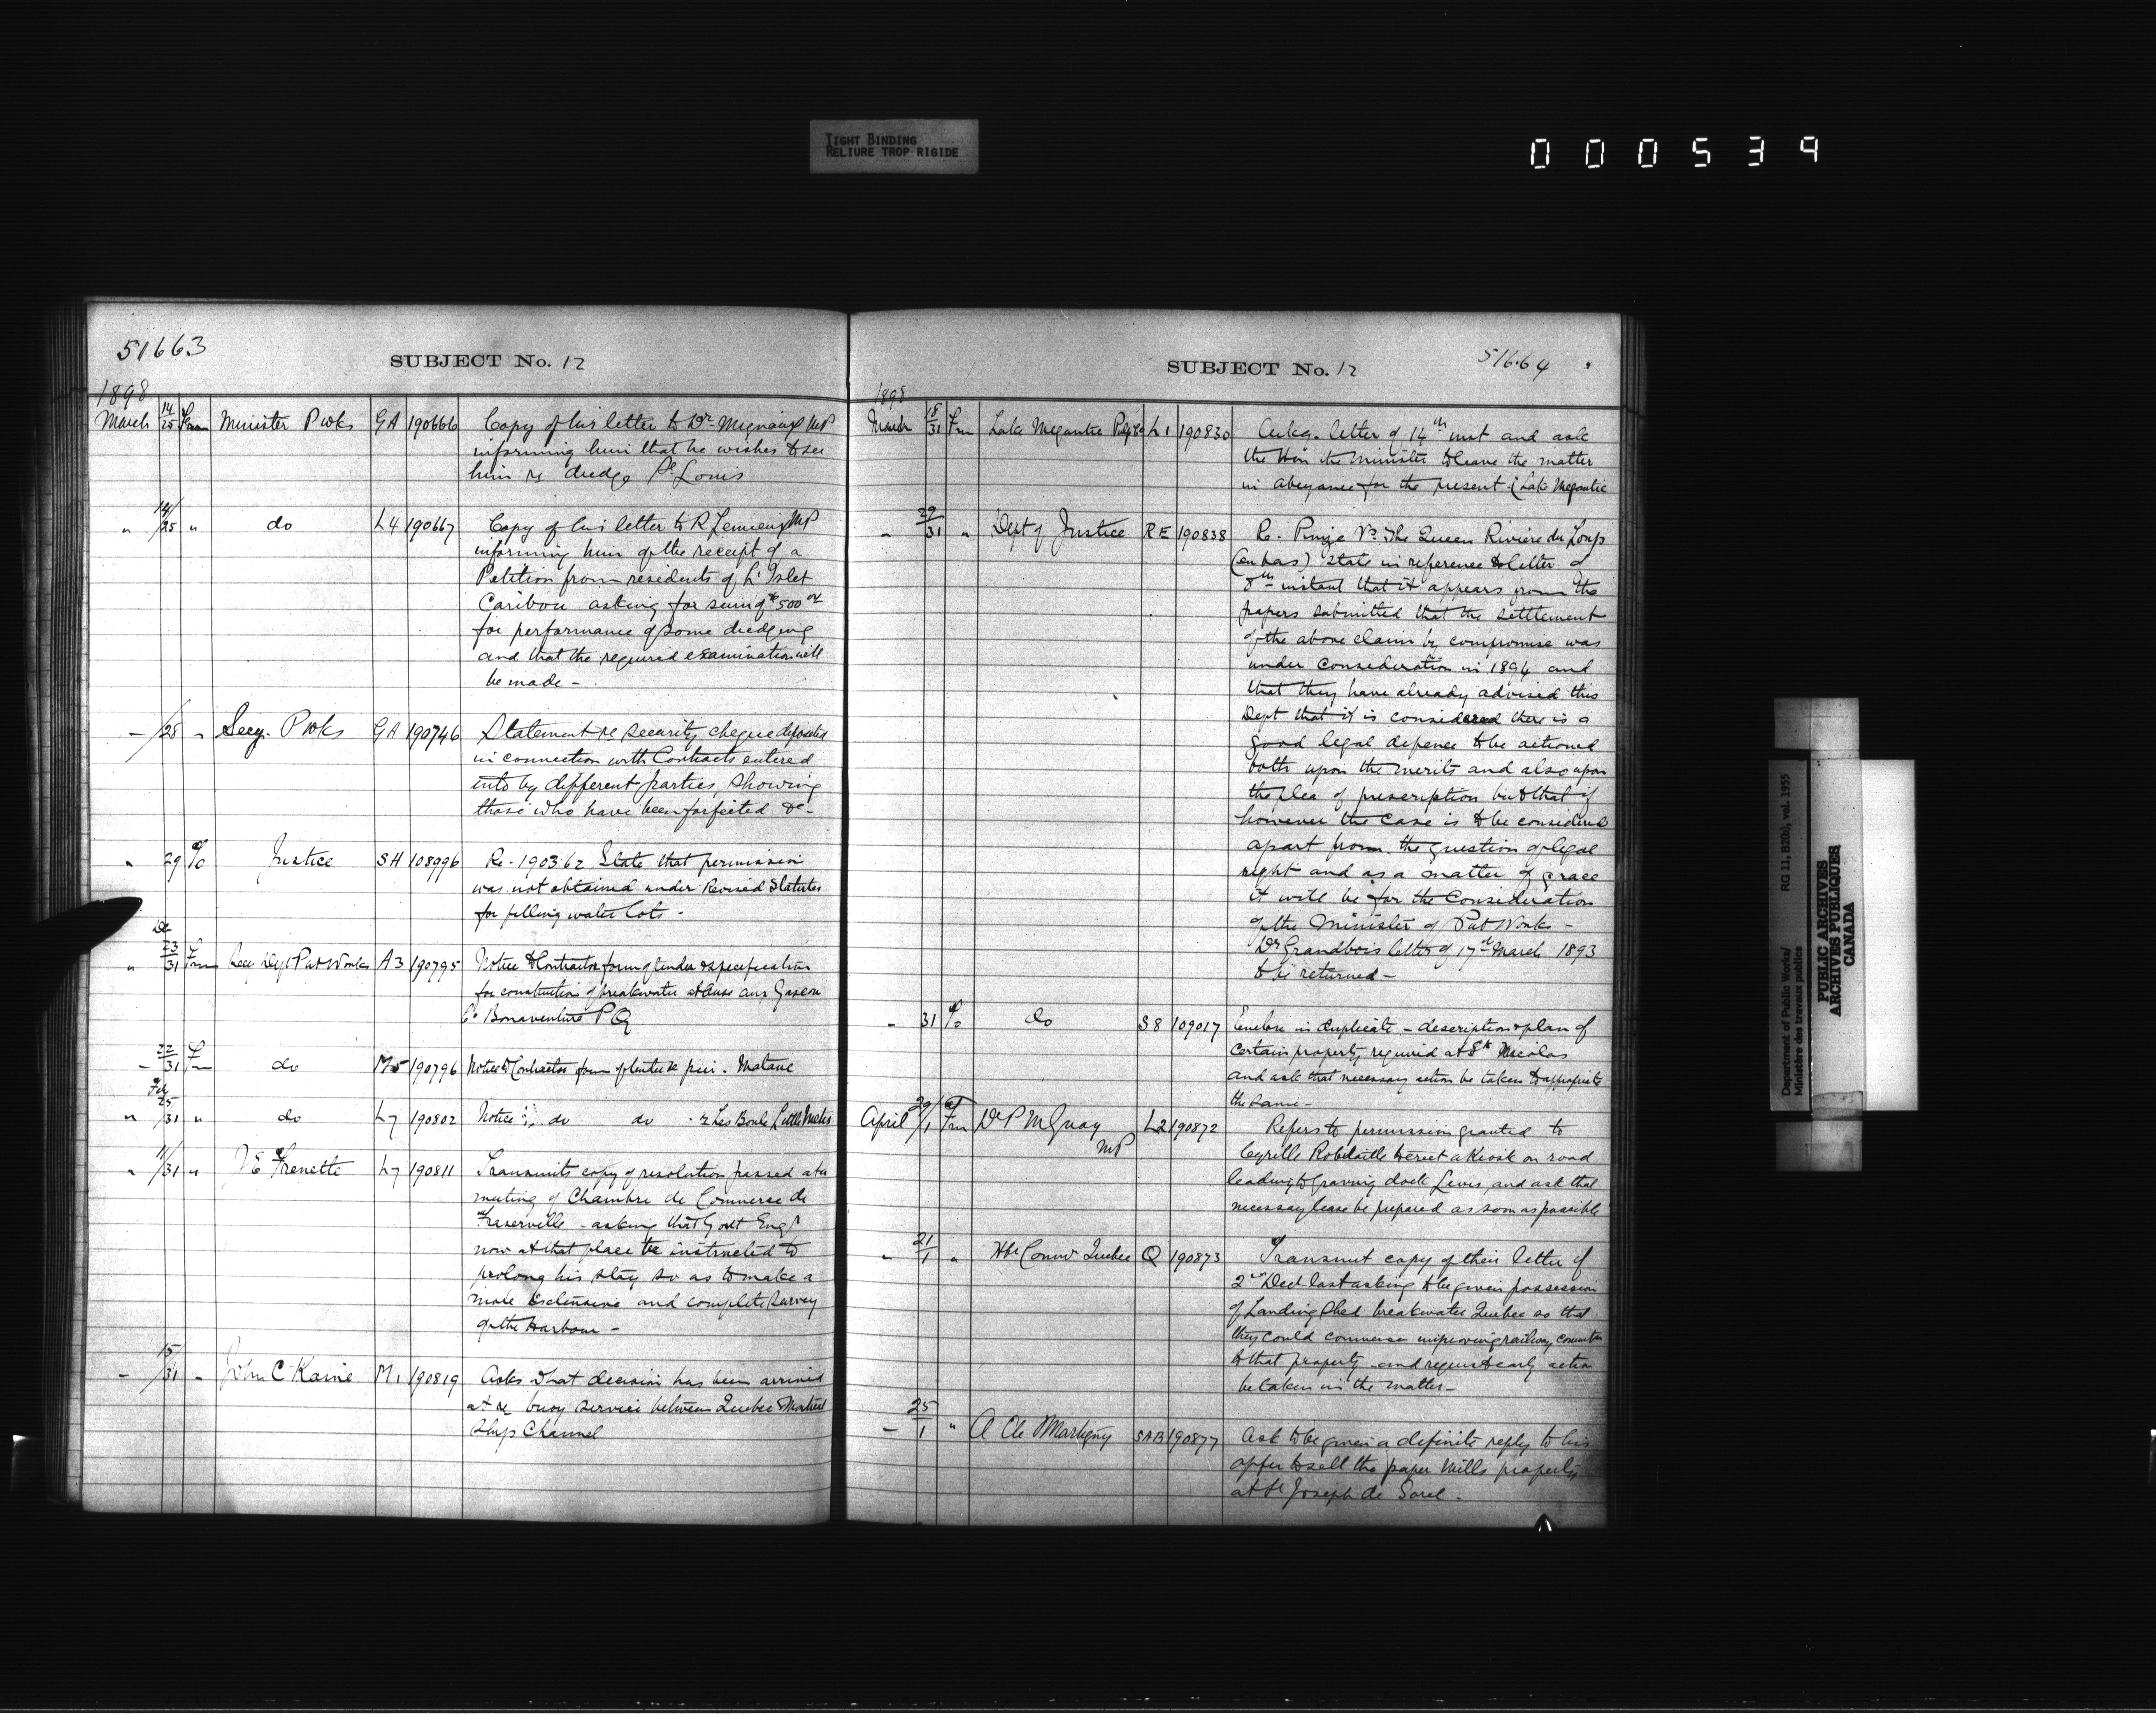 TIGHT BINDING
RELIURE TROP RIGIDE
000539
51663
SUBJECT No. 12
1898
March 14/25 From Minister P Wks GA 190666 Copy of his letter to Dr Mignault MP
informing him that he wishes to see
him re dredge St Louis
" 14/25 " do L4 190667 Copy of his letter to R Lemieux MP
informing him of the receipt of a
Petition from residents of L'Islet
Caribou asking for sum of $500 00
for performance of some dredging
and that the required examination will
be made -
" /28 " Secy. P Wks GA 190746 Statement re security cheques deposited
in connection with Contracts entered
into by different parties, showing
those who have been forfeited &c-
" 29 % Justice SH 108996 Re - 190362 State that permission
was not obtained under Revised Statutes
for filling water lots -
De
" 23/31 Frm Secy Dept Pub Works A3 190795 Notice to Contractors form of tender & specification
for construction of breakwater at Anse aux Gascon
Co Bonaventure P Q
- 22/31 Frm do M5 190796 Notice to Contractors form of tender re pier. Matane
Feb
" 25/31 " do L7 190802 Notice do do re Les Boule Little Metis
" 11/31 " J E Frenette L7 190811 Transmits copy of resolution passed at a
meeting of Chambre de Commerce de
Fraserville - asking that Govt Engr
now at that place be instructed to
prolong his stay so as to make a
more extensive and complete survey
of the Harbour -
- 15/31 " John C Kaine M1 190819 Asks what decision has been arrived
at re buoy service between Quebec Montreal
Ship Channel
SUBJECT No. 12
51664
1898
March 18/31 Frm Lake Megantic Pulp Co L1 190830 Ackg. letter of 14th inst and ask
the Hon the Minister to leave the matter
in abeyance for the present. (Lake Megantic
" 29/31 " Dept of Justice RE 190838 Re. Pinze Vs The Queen Riviere du Loup
(en bas) State in reference to letter of
8th instant that it appears from the
papers submitted that the settlement
of the above claim by compromise was
under consideration in 1894 and
that they have already advised this
Dept that it is considered there is a
good legal defence to be actioned
both upon the merits and also upon
the plea of prescription but that if
however the case is to be considered
apart from the question of legal
right and as a matter of grace
it will be for the Consideration
of the Minister of Pub Works -
Dr Grandbois letter of 17th March 1893
to be returned -
" 31 % do S8 109017 Enclose in duplicate - description & plan of
certain property required at St Nicolas
and ask that necessary action be taken to appropriate
the same -
April 29/1 Frm Dr P M Guay MP L2 190872 Refers to permission granted to
Cyrille Robitaille to erect a Kiosk on road
leading to Graving dock Levis, and ask that
necessary lease be prepared as soon as possible
" 21/1 " Hbr Commr Quebec Q 190873 Transmit copy of their letter of
2nd Decr last asking to be given possession
of Landing Shed breakwater Quebec so that
they could commence improving railway connection
to that property - and request early action
be taken in the matter -
- 25/1 " A de Martigny SAB 190877 Ask to be given a definite reply to his
offer to sell the paper Mills property
at St Joseph de Sorel -
Department of Public Works/ RG 11, B2(b), vol. 1955
Ministère des travaux publics
PUBLIC ARCHIVES
ARCHIVES PUBLIQUES
CANADA